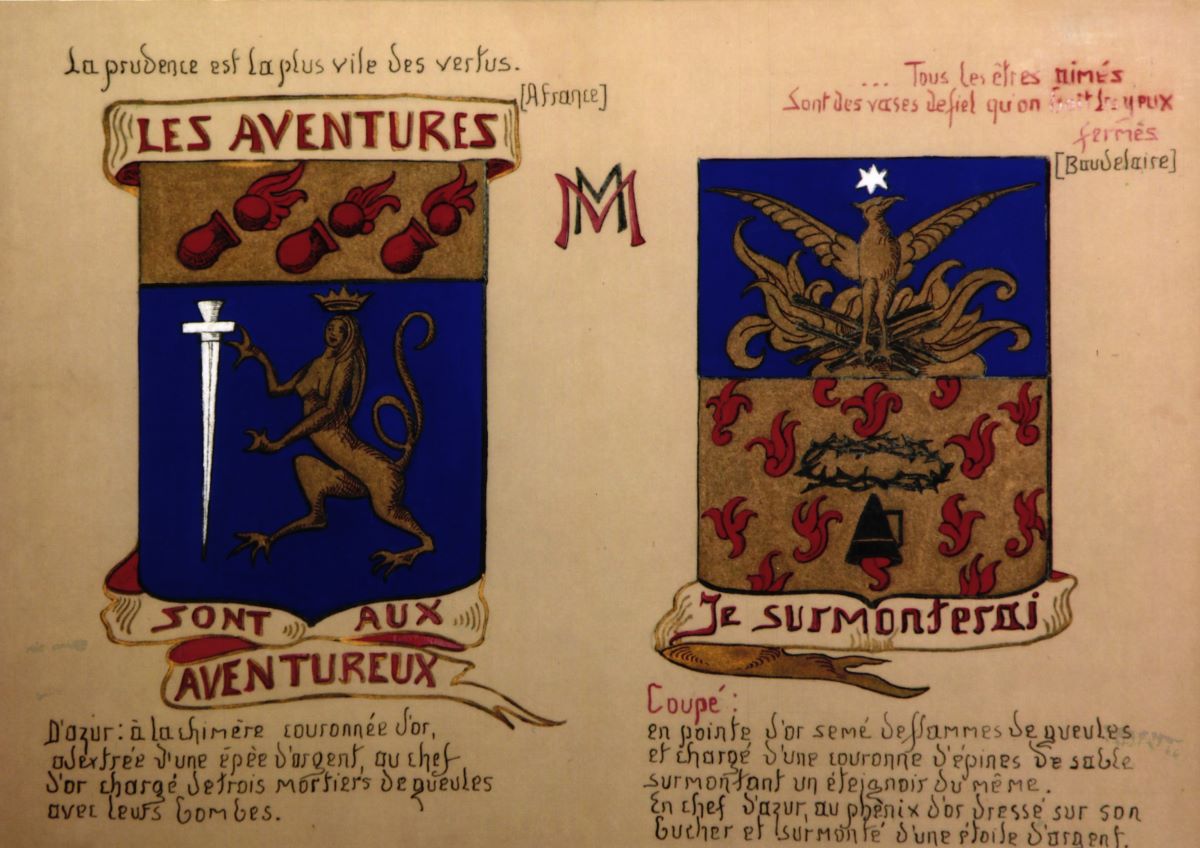 La prudence est la plus vile des vertus.
[A france]
LES AVENTURES
SONT AUX
AVENTUREUX
D'azur: à la chimère couronnée d'or,
adextrée d'une épée d'argent, au chef
d'or chargé de trois mortiers de gueules
avec leurs bombes.
MM
... Tous les êtres aimés
Sont des vases de fiel qu'on boit les yeux
fermés
[Baudelaire]
Je surmonterai
Coupé:
en pointe d'or semé de flammes de gueules
et chargé d'une couronne d'épines de sable
surmontant un éteignoir du même.
En chef d'azur, au phénix d'or dressé sur son
bucher et surmonté d'une étoile d'argent.